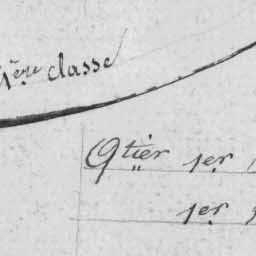 1ère classe
Qtier 1er
1er